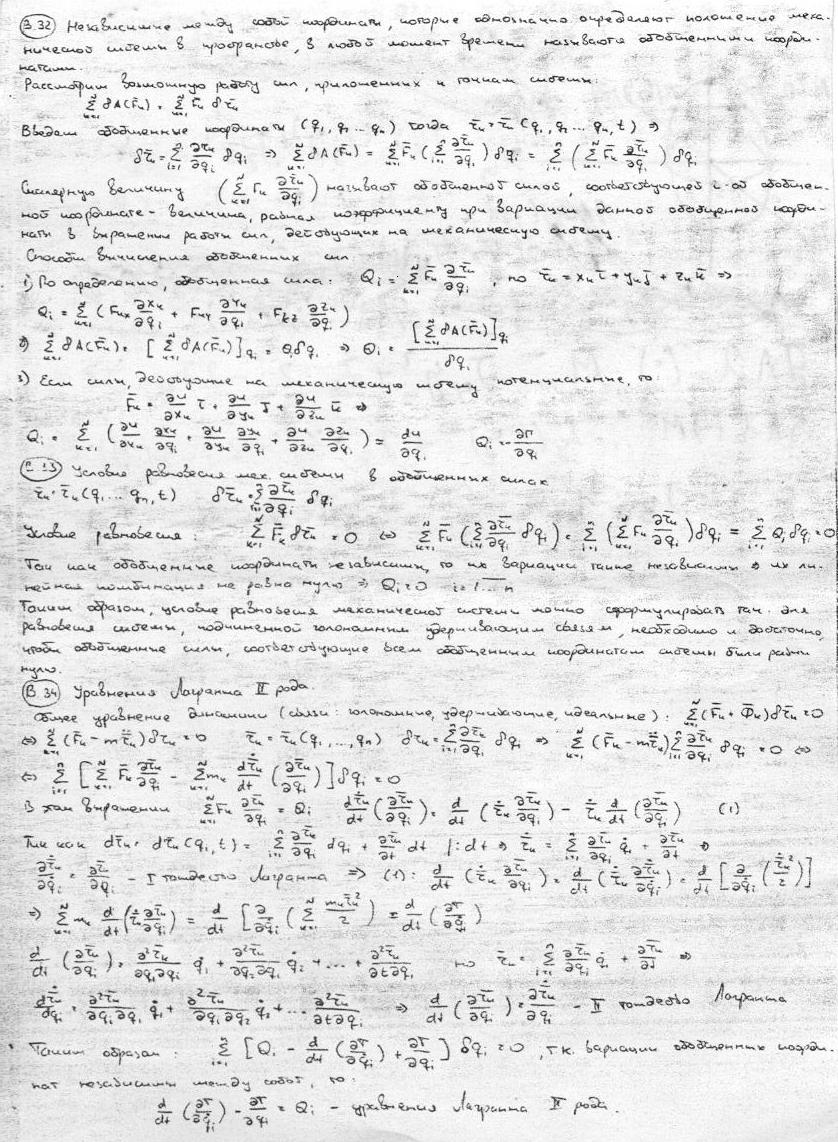 В.32 Независимые между собой координаты, которые однозначно определяют положение меха-
нической системы в пространстве, в любой момент времени называются обобщёнными коорди-
натами.
Рассмотрим возможную работу сил, приложенных к точкам системы:
∑_{k=1}^{N} δA(F̄_k) = ∑_{k=1}^{N} F̄_k δr̄_k
Введем обобщенные координаты (q₁, q₂ ... qₙ) тогда r̄_k = r̄_k (q₁, q₂ ... qₙ, t) ⇒
δr̄_k = ∑_{i=1}^{n} ∂r̄_k/∂q_i δq_i ⇒ ∑_{k=1}^{N} δA(F̄_k) = ∑_{k=1}^{N} F̄_k (∑_{i=1}^{n} ∂r̄_k/∂q_i) δq_i = ∑_{i=1}^{n} (∑_{k=1}^{N} F̄_k ∂r̄_k/∂q_i) δq_i
Скалярную величину (∑_{k=1}^{N} F_k ∂r̄_k/∂q_i) называют обобщенной силой, соответствующей i-ой обобщен-
ной координате - величина, равная коэффициенту при вариации данной обобщенной коорди-
наты в выражении работы сил, действующих на механическую систему.
Способы вычисления обобщенных сил
1) По определению, обобщенная сила: Q_i = ∑_{k=1}^{N} F̄_k ∂r̄_k/∂q_i, но r̄_k = x_k ī + y_k j̄ + z_k k̄ ⇒
Q_i = ∑_{k=1}^{N} (F_kx ∂x_k/∂q_i + F_ky ∂y_k/∂q_i + F_kz ∂z_k/∂q_i)
2) ∑_{k=1}^{N} δA(F̄_k) = [∑_{k=1}^{N} δA(F̄_k)]_{q_i} = Q_i δq_i ⇒ Q_i = [∑_{k=1}^{N} δA(F̄_k)]_{q_i} / δq_i
3) Если силы, действующие на механическую систему потенциальные, то:
F̄_k = ∂u/∂x_k ī + ∂u/∂y_k j̄ + ∂u/∂z_k k̄ ⇒
Q_i = ∑_{k=1}^{N} (∂u/∂x_k ∂x_k/∂q_i + ∂u/∂y_k ∂y_k/∂q_i + ∂u/∂z_k ∂z_k/∂q_i) = du/∂q_i Q_i = -∂П/∂q_i
В.33 Условие равновесия мех. системы в обобщенных силах
r̄_k = r̄_k (q₁ ... qₙ, t) δr̄_k = ∑_{i=1}^{n} ∂r̄_k/∂q_i δq_i
Условие равновесия: ∑_{k=1}^{N} F̄_k δr̄_k = 0 ⇔ ∑_{k=1}^{N} F̄_k (∑_{i=1}^{n} ∂r̄_k/∂q_i δq_i) = ∑_{i=1}^{n} (∑_{k=1}^{N} F_k ∂r̄_k/∂q_i) δq_i = ∑_{i=1}^{n} Q_i δq_i = 0
Так как обобщенные координаты независимы, то их вариации также независимы и их ли-
нейная комбинация не равна нулю ⇒ Q_i = 0 i = 1...n
Таким образом, условие равновесия механической системы можно сформулировать так: для
равновесия системы, подчиненной голономным удерживающим связям, необходимо и достаточно,
чтобы обобщенные силы, соответствующие всем обобщенным координатам системы были равны
нулю.
В.34 Уравнения Лагранжа II рода.
Общее уравнение динамики (связи: голономные, удерживающие, идеальные): ∑_{k=1}^{N} (F̄_k + Φ̄_k) δr̄_k = 0
⇔ ∑_{k=1}^{N} (F̄_k - m r̄̈_k) δr̄_k = 0 r̄_k = r̄_k (q₁, ..., qₙ) δr̄_k = ∑_{i=1}^{n} ∂r̄_k/∂q_i δq_i ⇒ ∑_{k=1}^{N} (F̄_k - m r̄̈_k) ∑_{i=1}^{n} ∂r̄_k/∂q_i δq_i = 0 ⇔
⇔ ∑_{i=1}^{n} [∑_{k=1}^{N} F̄_k ∂r̄_k/∂q_i - ∑_{k=1}^{N} m_k d r̄̇_k/dt (∂r̄_k/∂q_i)] δq_i = 0
В этом выражении ∑_{k=1}^{N} F_k ∂r̄_k/∂q_i = Q_i d r̄̇_k/dt (∂r̄_k/∂q_i) = d/dt (r̄̇_k ∂r̄_k/∂q_i) - r̄̇_k d/dt (∂r̄_k/∂q_i) (1)
Так как dr̄_k = dr̄_k (q_i, t) = ∑_{i=1}^{n} ∂r̄_k/∂q_i dq_i + ∂r̄_k/∂t dt |: dt ⇒ r̄̇_k = ∑_{i=1}^{n} ∂r̄_k/∂q_i q̇_i + ∂r̄_k/∂t ⇒
∂r̄̇_k/∂q̇_i = ∂r̄_k/∂q_i - I тождество Лагранжа ⇒ (1): d/dt (r̄̇_k ∂r̄_k/∂q_i) = d/dt (r̄̇_k ∂r̄̇_k/∂q̇_i) = d/dt [∂/∂q̇_i (r̄̇_k²/2)]
⇒ ∑_{k=1}^{N} m_k d/dt (r̄̇_k ∂r̄_k/∂q_i) = d/dt [∂/∂q̇_i (∑_{k=1}^{N} m_k r̄̇_k²/2)] = d/dt (∂T/∂q̇_i)
d/dt (∂r̄_k/∂q_i) = ∂²r̄_k/∂q₁∂q_i q̇₁ + ∂²r̄_k/∂q₂∂q_i q̇₂ + ... + ∂²r̄_k/∂t∂q_i но r̄̇_k = ∑_{i=1}^{n} ∂r̄_k/∂q_i q̇_i + ∂r̄_k/∂t ⇒
∂r̄̇_k/∂q_i = ∂²r̄_k/∂q_i∂q₁ q̇₁ + ∂²r̄_k/∂q_i∂q₂ q̇₂ + ... ∂²r̄_k/∂t∂q_i ⇒ d/dt (∂r̄_k/∂q_i) = ∂r̄̇_k/∂q_i - II тождество Лагранжа
Таким образом: ∑_{i=1}^{n} [Q_i - d/dt (∂T/∂q̇_i) + ∂T/∂q_i] δq_i = 0, т.к. вариации обобщенных коорди-
нат независимы между собой, то:
d/dt (∂T/∂q̇_i) - ∂T/∂q_i = Q_i - уравнения Лагранжа II рода.